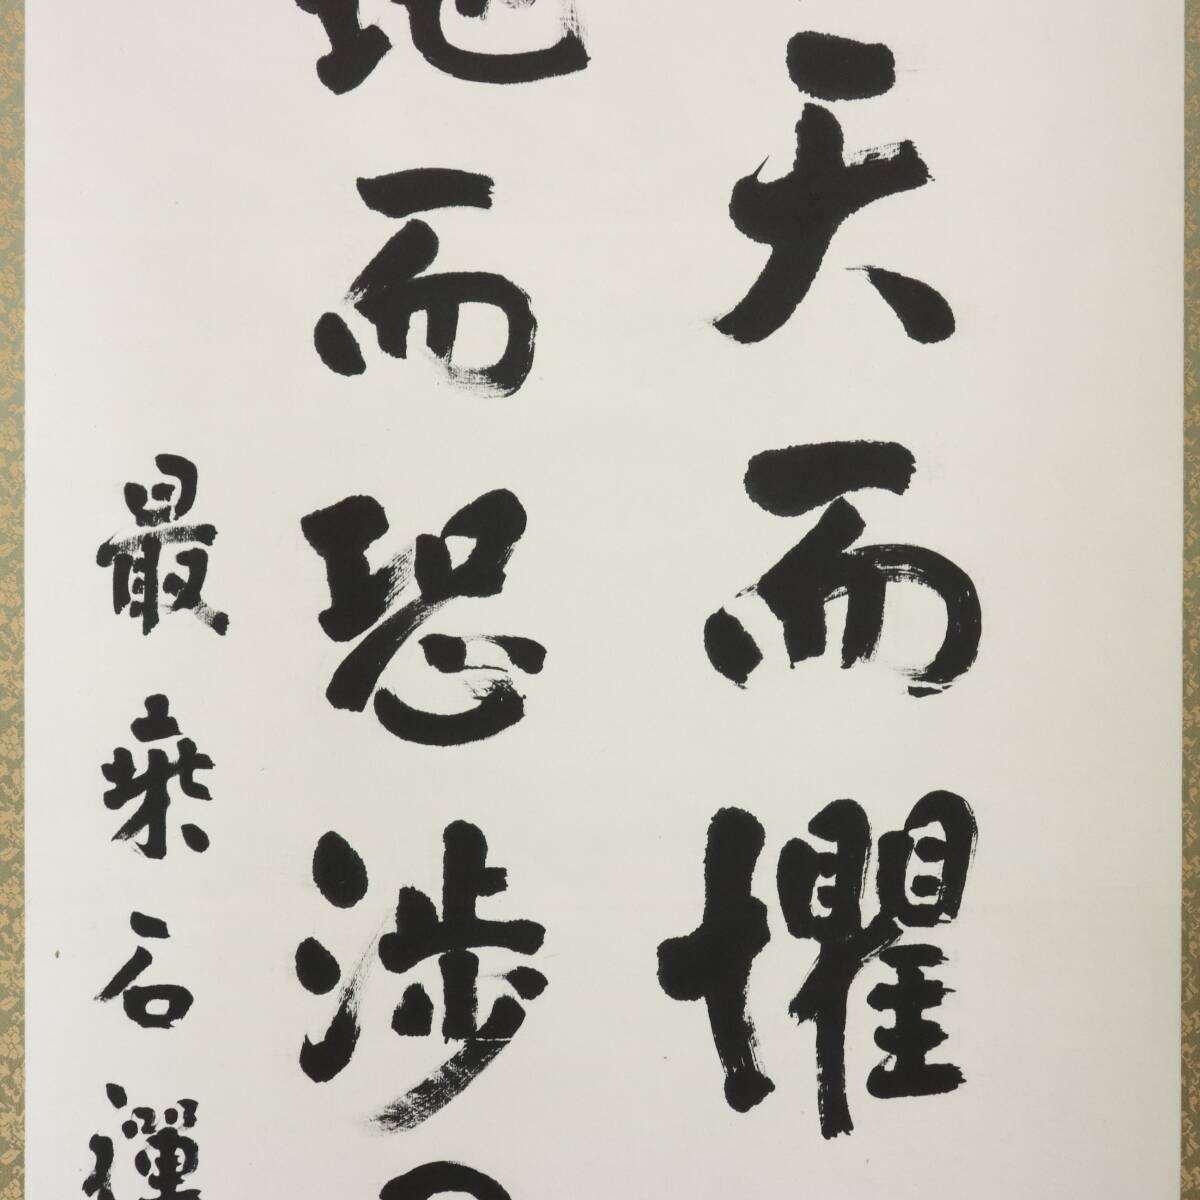 天而懼
地而恐涉
最乗石禪